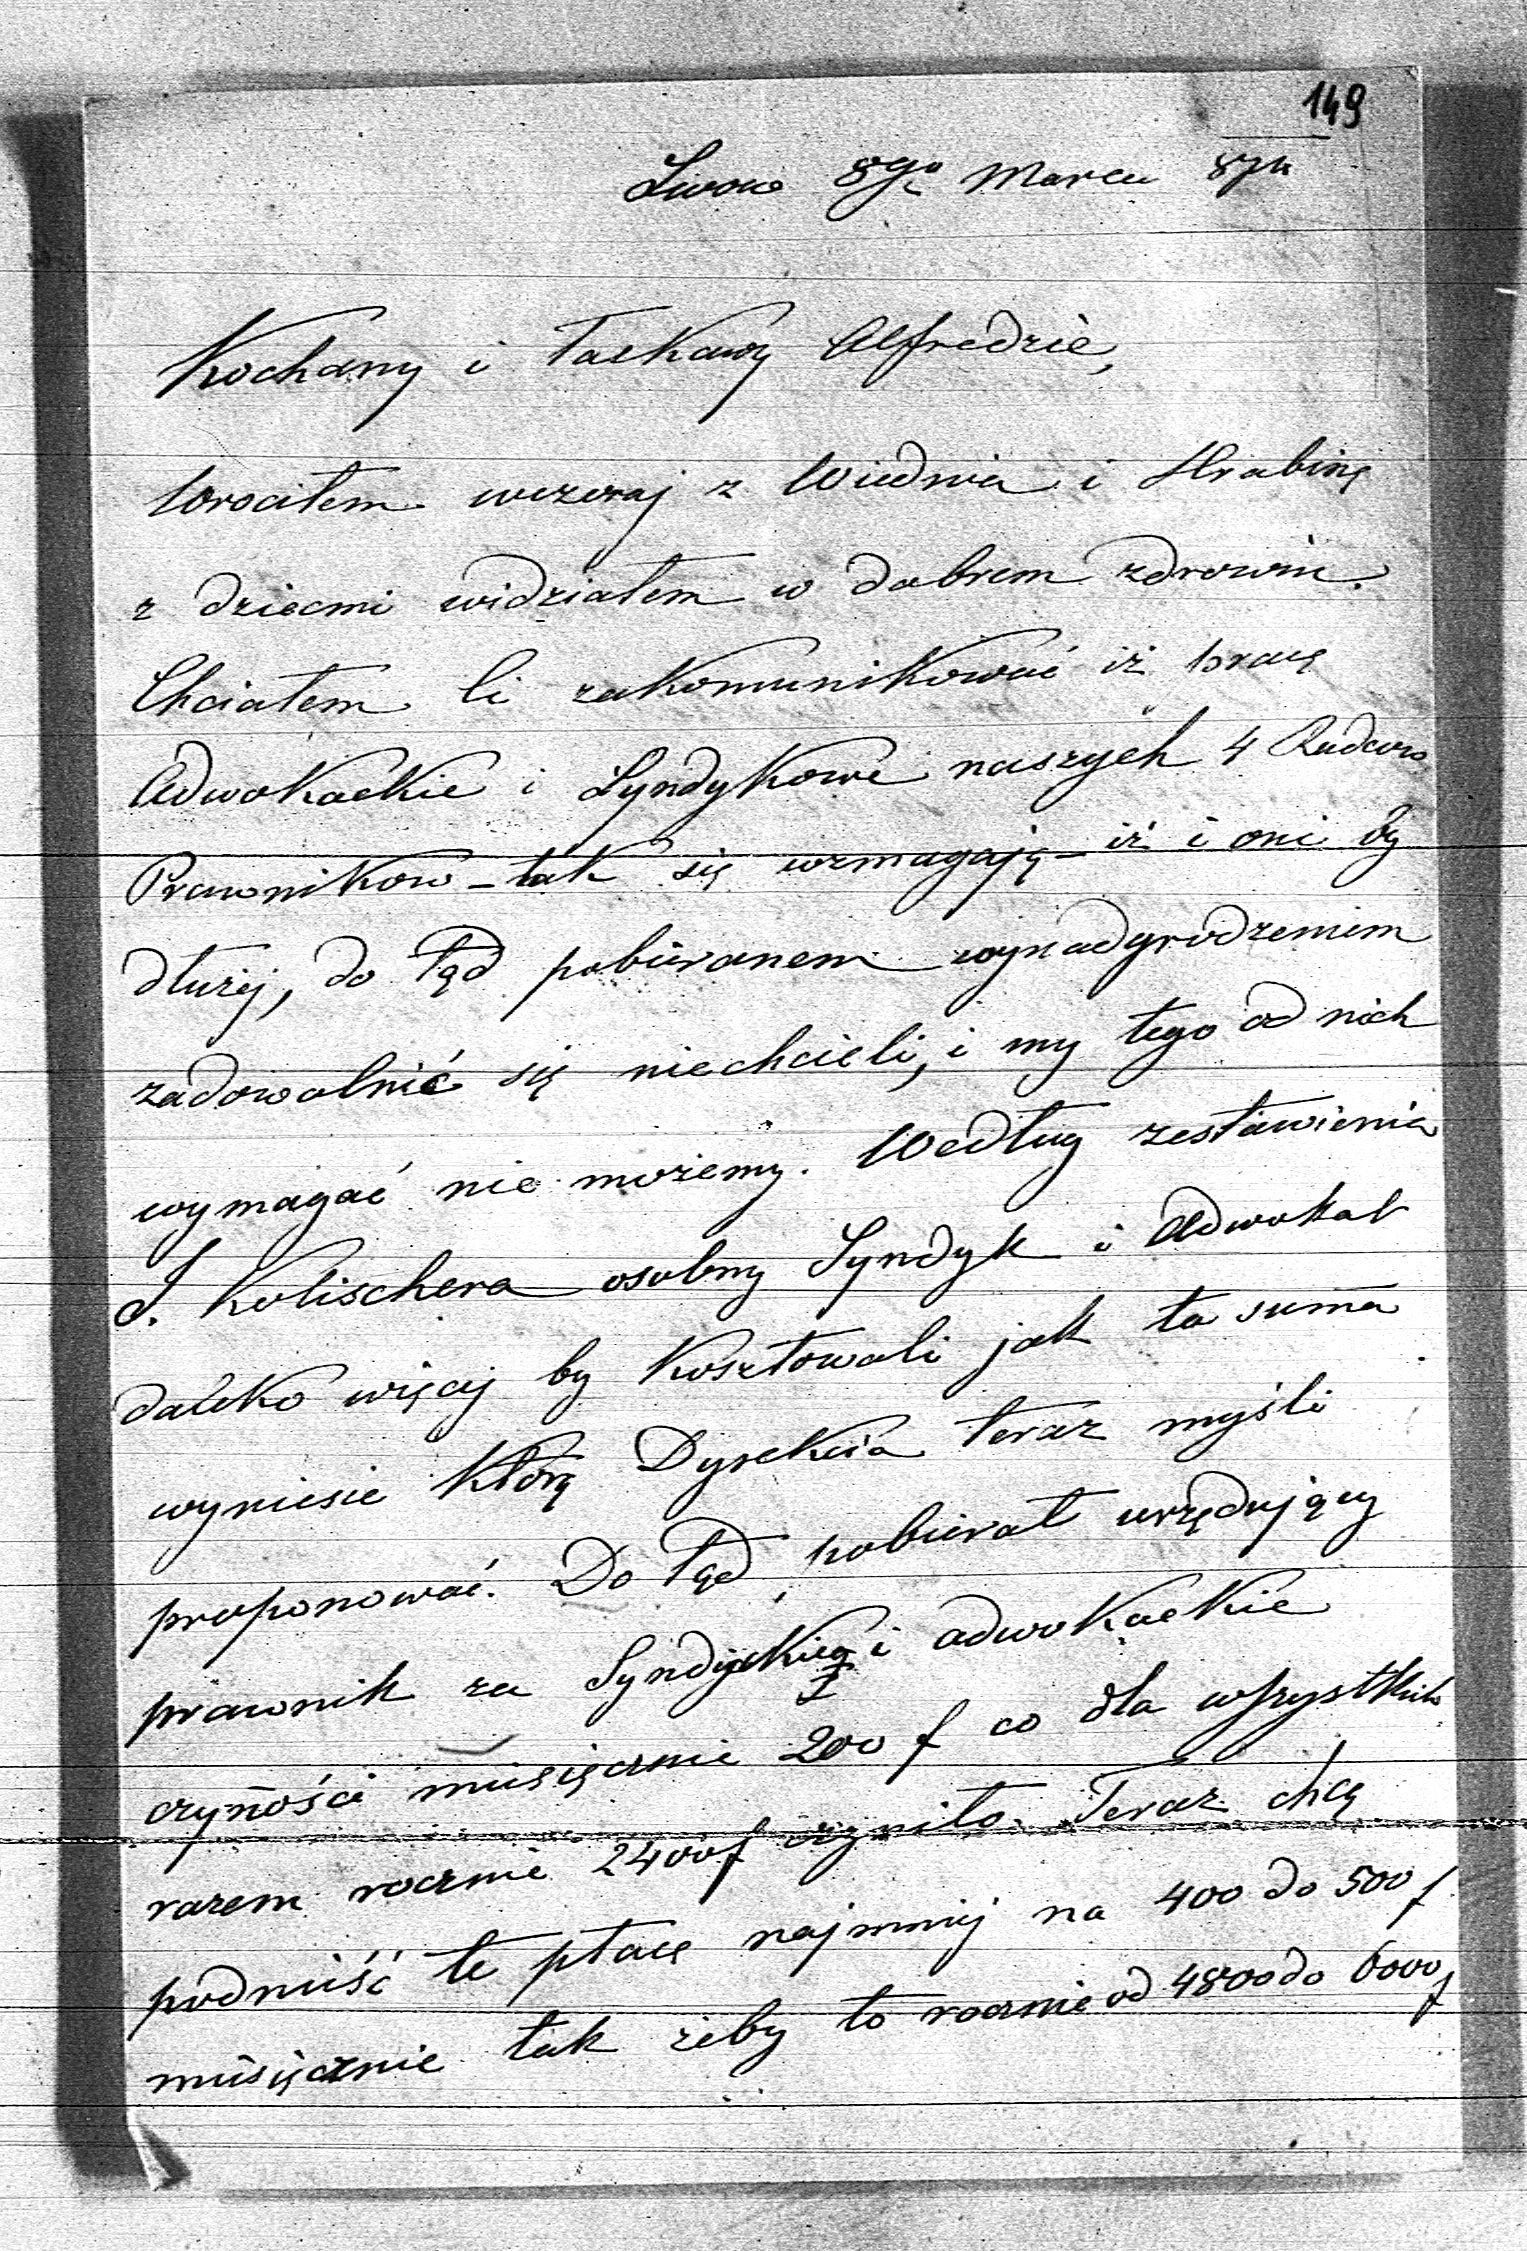 149
Lwow 8go Marca 87r
Kochany i Łaskawy Alfredzie,
Wrociłem wczoraj z Wiednia i Hrabinę
z dziecmi widziałem w dobrem zdrowiu.
Chciałem Ci zakomunikować iż pracę
Adwokackie i Syndykowe naszych 4 Radcow
Prawnikow – tak się wzmagają – iż i oni by
dłużej, do tąd pobieranem wynadgrodzeniem
zadowolnić się niechcieli, i my tego od nich
wymagać nie możemy. Według zestawienia
J. Kolischera osobny Syndyk i Adwokat
daleko więcej by kosztowali jak ta suma
wyniesie którą Dyrekcia teraz myśli
proponować. Do tąd pobierał urzędujący
prawnik za Syndyckie i adwokackie
czynośći miesięcznie 200 f co dla wszystkich
razem rocznie 2400f czyniło. Teraz chcą
podnieść te płacę najmniej na 400 do 500 f
miesięcznie tak żeby to rocznie od 4800 do 6000 f